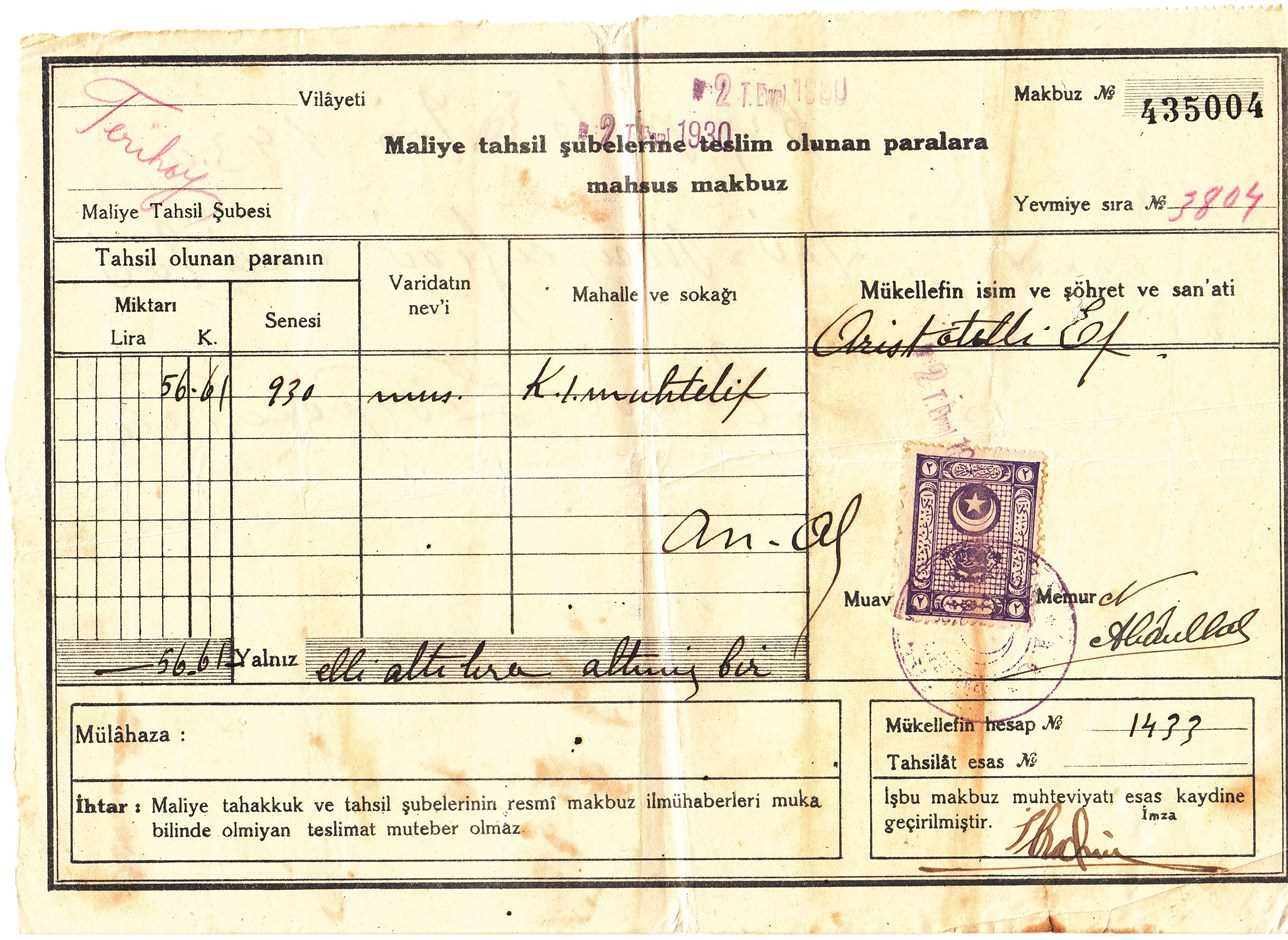 Vilâyeti
2 T. Evvel 1930
Makbuz № 435004
2 T. Evvel 1930
Maliye tahsil şubelerine teslim olunan paralara
mahsus makbuz
Maliye Tahsil Şubesi
Yevmiye sıra № 3804
Tahsil olunan paranın
Miktarı
Lira K.
Senesi
Varidatın
nev'i
Mahalle ve sokağı
Mükellefin isim ve şöhret ve san'ati
Aristotelli Ef
56.61 930 mus. K. 1. muhtelif
2 T. Evvel
٢ ٢
An-Al
٢ ٢
Muav
Memur
Abdullah
56.61 Yalnız elli altı lira altmış bir
Mülâhaza :
Mükellefin hesap № 1433
Tahsilât esas №
İhtar : Maliye tahakkuk ve tahsil şubelerinin resmî makbuz ilmühaberleri muka
bilinde olmiyan teslimat muteber olmaz.
İşbu makbuz muhteviyatı esas kaydine
geçirilmiştir. İmza
İbrahim